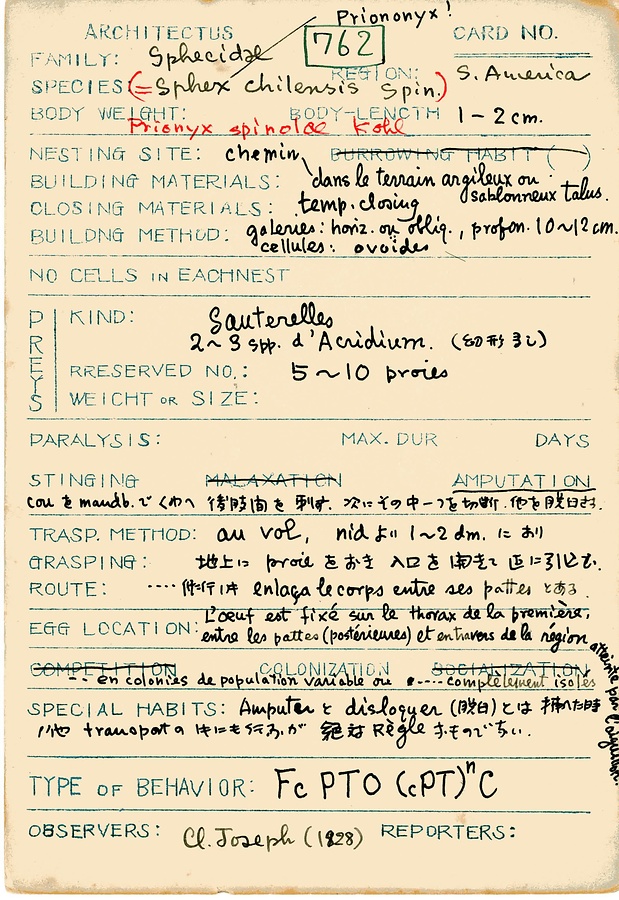 Priononyx!
ARCHITECTUS 762 CARD NO.
FAMILY: Sphecidae REGION: S. America
SPECIES (= Sphex chilensis Spin.)
BODY WEIGHT: BODY-LENGTH 1-2 cm.
Prionyx spinolae Kohl
NESTING SITE: chemin, BURROWING HABIT ( )
BUILDING MATERIALS: dans le terrain argileux ou
sablonneux talus.
CLOSING MATERIALS: temp. closing
BUILDNG METHOD: galeries: horiz. ou obliq., profon. 10~12 cm.
cellules: ovoides
NO CELLS IN EACHNEST
PREYS
KIND: Sauterelles
2~3 spp. d'Acridium. (幼形多し)
RRESERVED NO.: 5~10 proies
WEICHT OR SIZE:
PARALYSIS: MAX. DUR DAYS
STINGING MALAXATION AMPUTATION
cou を mandb. で くわへ 後肢間を刺す. 次にその中一つを切断. 他を脱臼さす.
TRASP. METHOD: au vol, nid より 1~2 dm. に おり
GRASPING: 地上に proie をおき 入口を開きて 直に引込む.
ROUTE: enlaça le corps entre ses pattes とある.
EGG LOCATION: L'œuf est fixé sur le thorax de la première,
entre les pattes (postérieures) et en travers de la région
atteinte par l'aiguillon.
COMPETITION COLONIZATION SOCIALIZATION
-- en colonies de population variable ou ---- complètement isolés
SPECIAL HABITS: Amputer と disloquer (脱臼) とは 捕へた時
他 transport の 時にも行ふが 絶対 Règle なものでない.
TYPE OF BEHAVIOR: Fc PTO (cPT)ⁿC
OBSERVERS: Cl. Joseph (1928) REPORTERS: